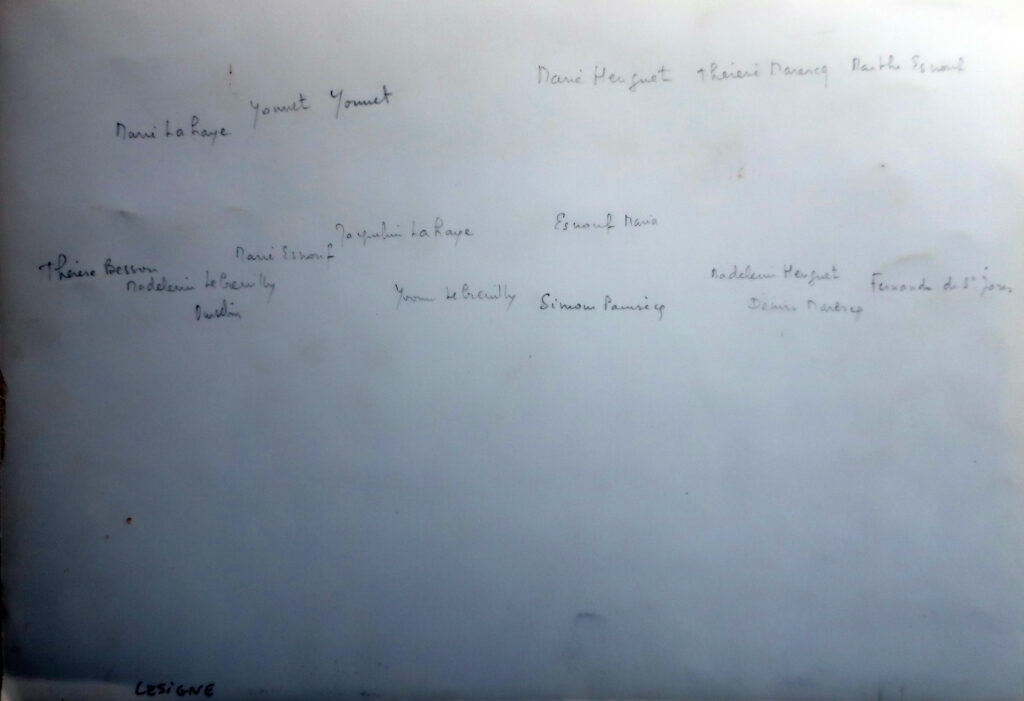 Marie Henguet Thérèse Marescq Marthe Esnouf
Yonnet Yonnet
Marie La haye
Esnouf Maria
Jacquelin La haye
Marie Esnouf
Thérèse Besson
Madeleine Henguet Fernande de St Jores
Madeleine Le Creuilly
Yvonne Le Creuilly Simone
Denise Marescq
LESIGNE